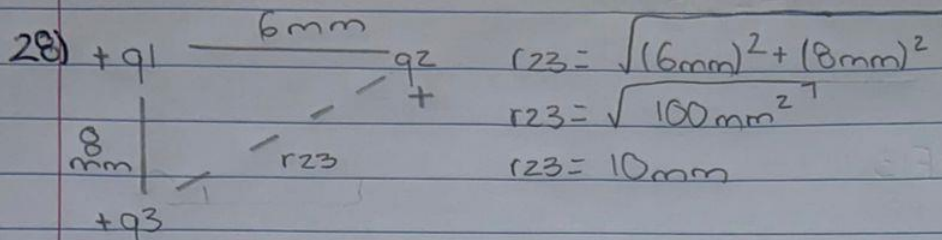 28) +q1 6mm q2 +
8 mm
r23
+q3
r23 = √(6mm)² + (8mm)²
r23 = √100mm²
r23 = 10mm